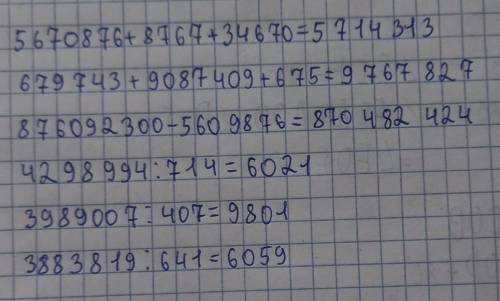 5670876+8767+34670=5 714 313
679 743+9087409+675=9 767 827
876092300-5609876=870 482 424
4298994:714=6021
3989007:407=9801
3883819:641=6059